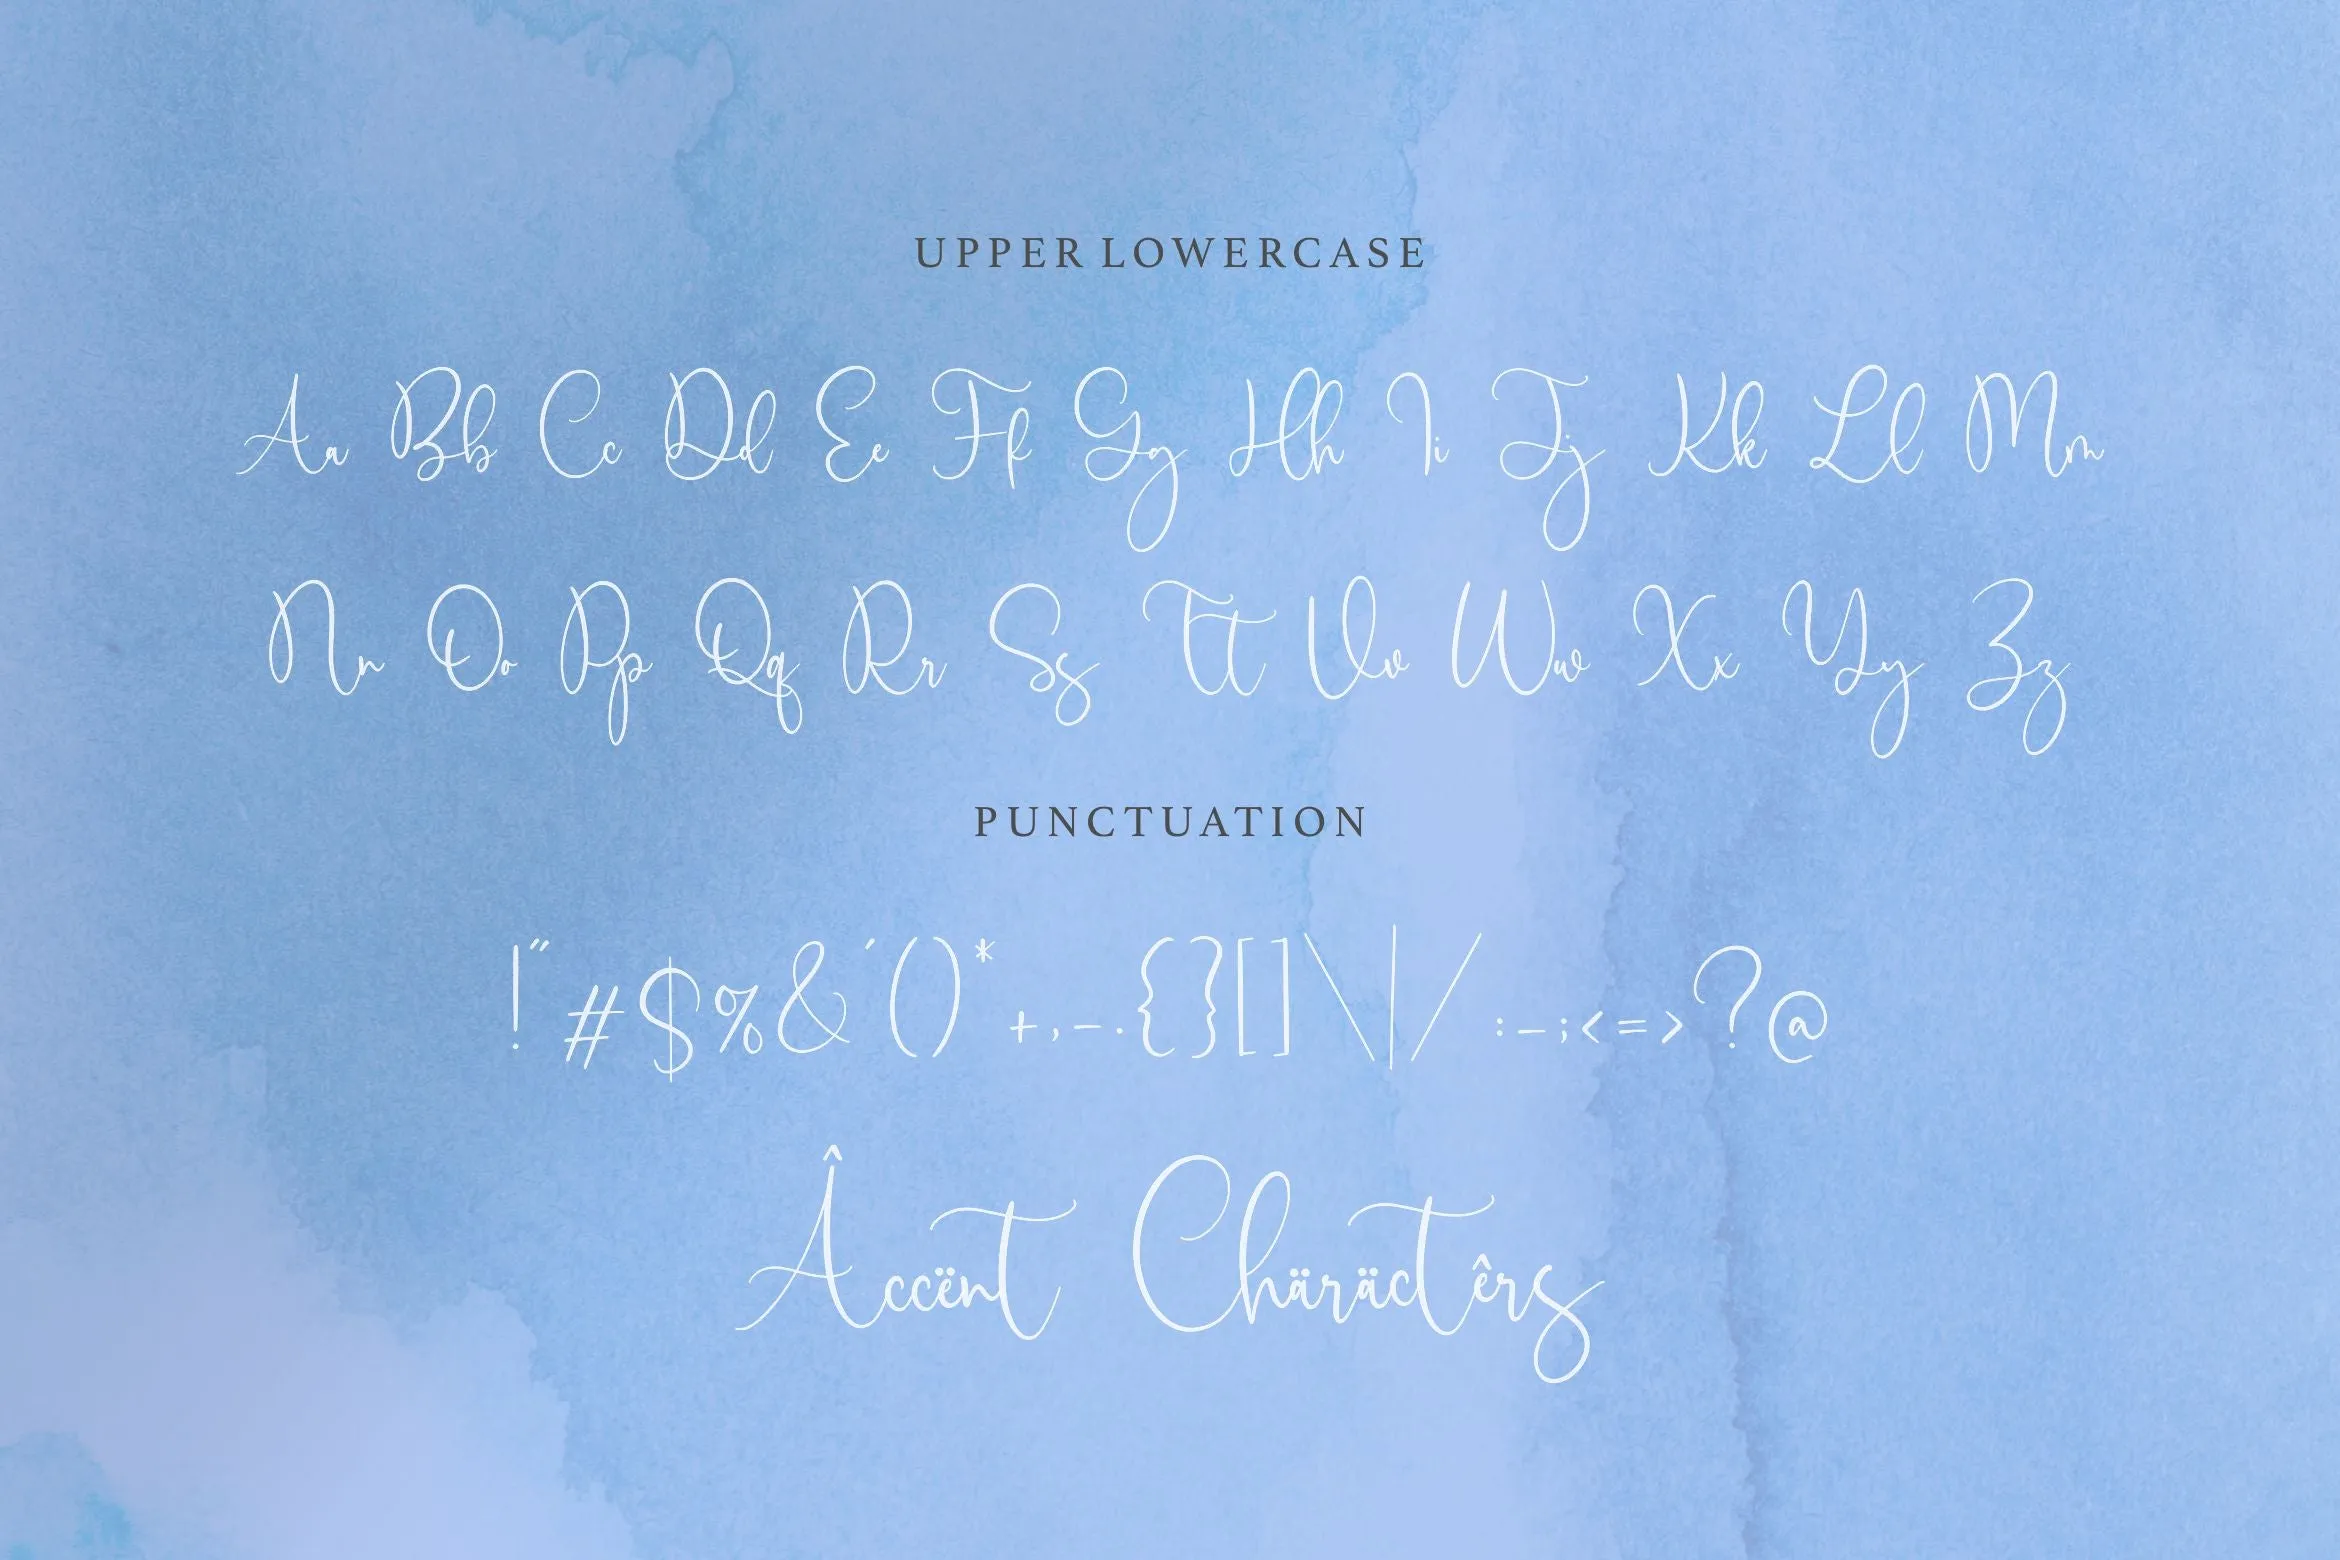 UPPER LOWERCASE
Aa Bb Cc Dd Ee Ff Gg Hh Ii Jj Kk Ll Mm
Nn Oo Pp Qq Rr Ss Tt Vv Ww Xx Yy Zz
PUNCTUATION
!"#$%&'()*+,-.{}[]\|/:-;<=>?@
Âccënt Chäräctêrs